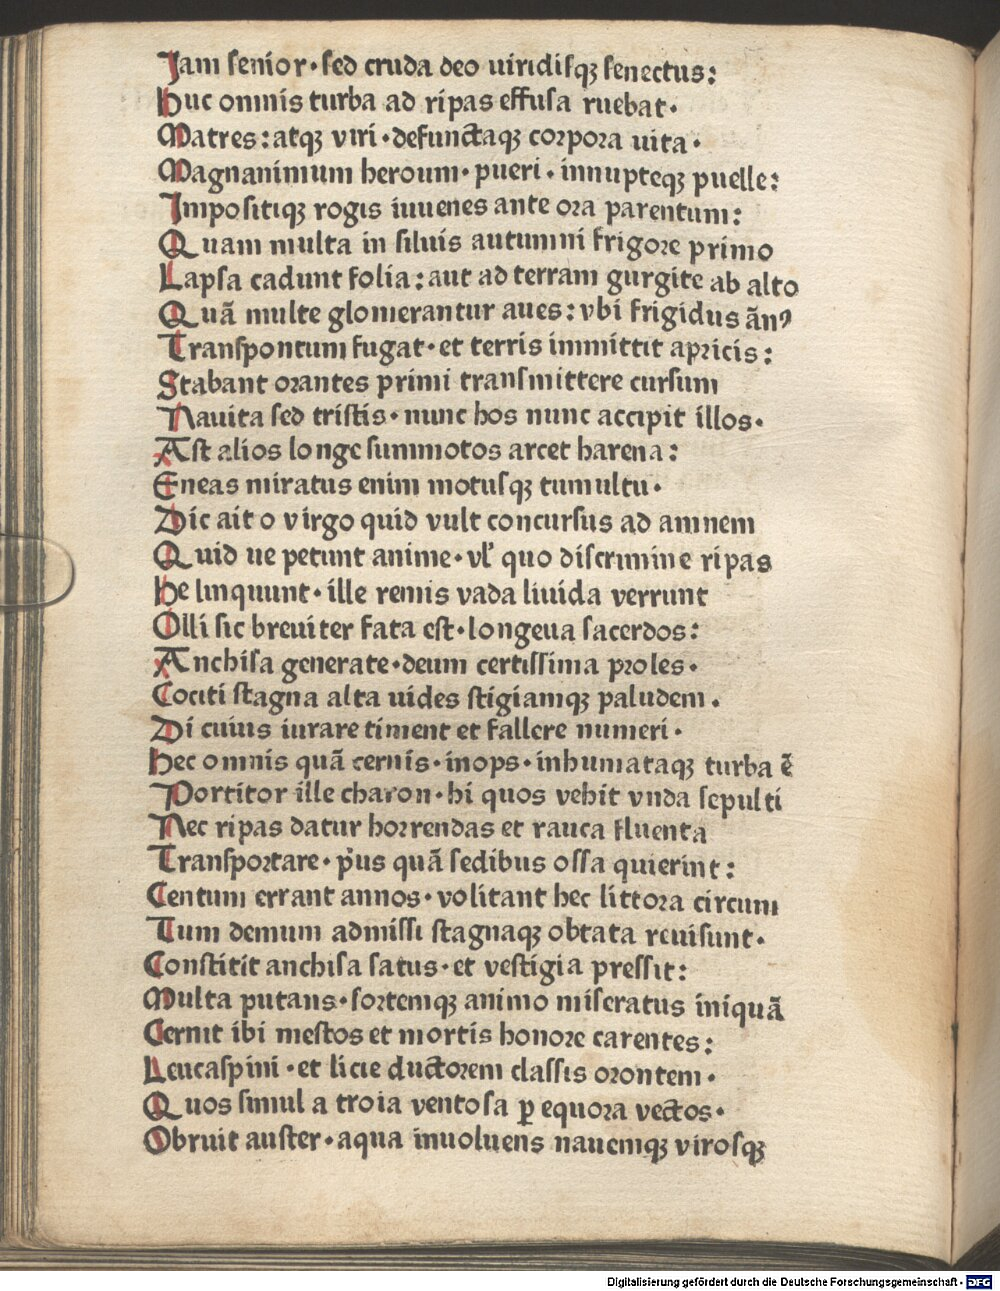 Jam senior·sed cruda deo uiridisqꝫ senectus:
Huc omnis turba ad ripas effusa ruebat·
Matres:atqꝫ viri·defunctaqꝫ corpora uita·
Magnanimum heroum·pueri·innupteqꝫ puelle:
Impositiqꝫ rogis iuuenes ante ora parentum:
Quam multa in siluis autumni frigore primo
Lapsa cadunt folia:aut ad terram gurgite ab alto
Quā multe glomerantur aues:vbi frigidus ānꝰ
Transpontum fugat·et terris immittit apricis:
Stabant orantes primi transmittere cursum
Nauita sed tristis·nunc hos nunc accipit illos·
Ast alios longe summotos arcet harena:
Eneas miratus enim motusqꝫ tumultu·
Dic ait o virgo quid vult concursus ad amnem
Quid ue petunt anime·vl' quo discrimine ripas
He linquunt·ille remis vada liuida verrunt
Olli sic breuiter fata est·longeua sacerdos:
Anchisa generate·deum certissima proles·
Cociti stagna alta uides stigiamqꝫ paludem·
Di cuius iurare timent et fallere numeri·
Hec omnis quā cernis·inops·inhumataqꝫ turba ē
Portitor ille charon·hi quos vehit vnda sepulti
Nec ripas datur horrendas et rauca fluenta
Transportare·p'us quā sedibus ossa quierint:
Centum errant annos·volitant hec littora circum
Tum demum admissi stagnaqꝫ obtata reuisunt·
Constitit anchisa satus·et vestigia pressit:
Multa putans·sortemqꝫ animo miseratus iniquā
Cernit ibi mestos et mortis honore carentes:
Leucaspini·et licie ductorem classis orontem·
Quos simul a troia ventosa ꝑ equora vectos·
Obruit auster·aqua inuoluens nauemqꝫ virosqꝫ
Digitalisierung gefördert durch die Deutsche Forschungsgemeinschaft - DFG